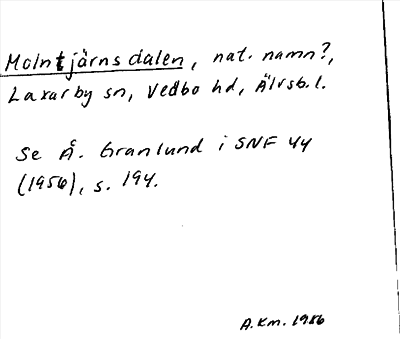 Molntjärnsdalen, nat. namn?,
Laxarby sn, Vedbo hd, Älvsb.l.
Se Å. Granlund i SNF 44
(1956), s. 194.
A.Km. 1986